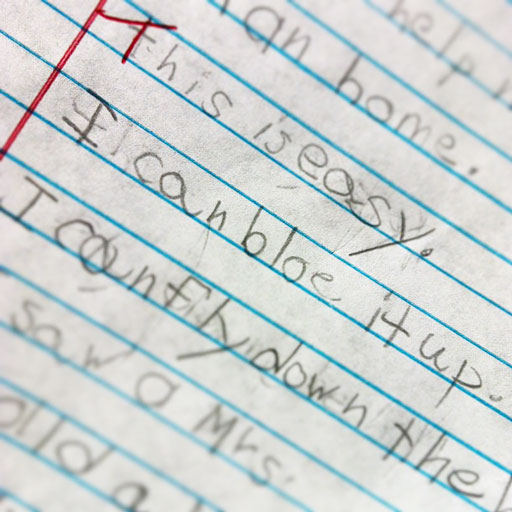 help
an home.
This is easy.
I can bloe it up.
I can fly down the
saw a Mrs.
a